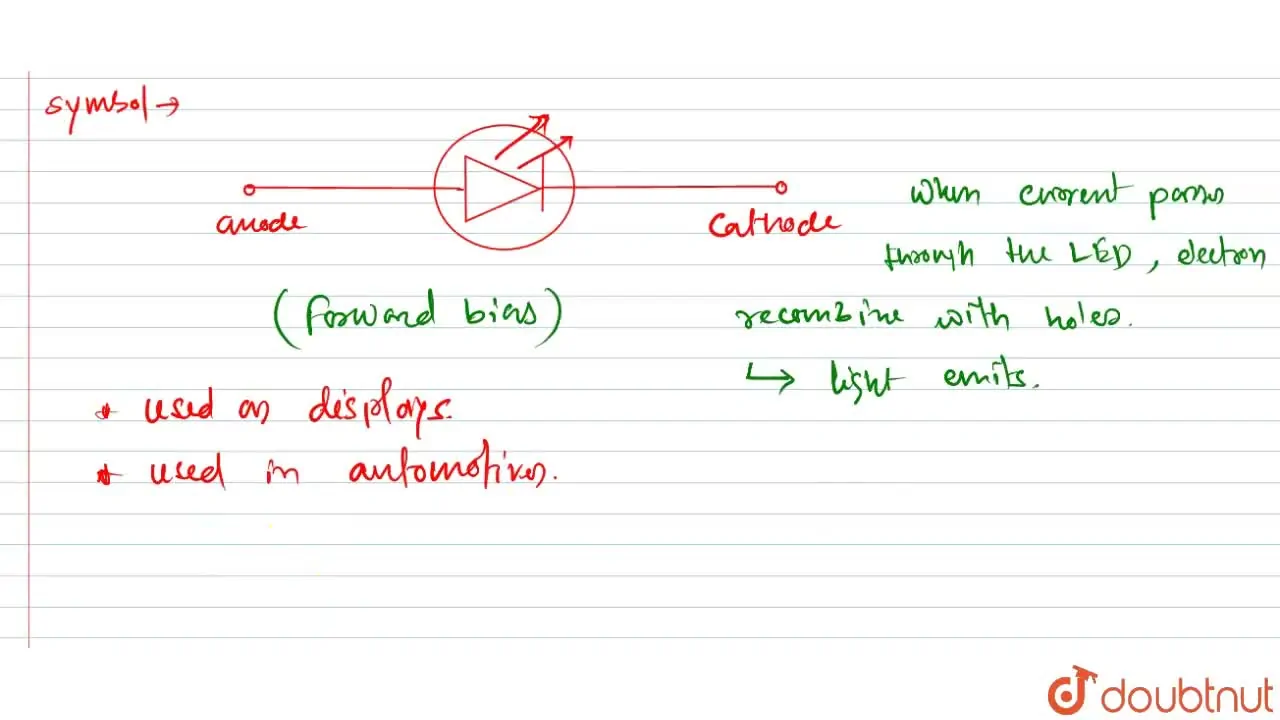 symbol →
anode
cathode
(forward bias)
when current passes
through the LED, electron
recombine with holes.
↳ light emits.
* used as displays.
* used in automotives.
doubtnut